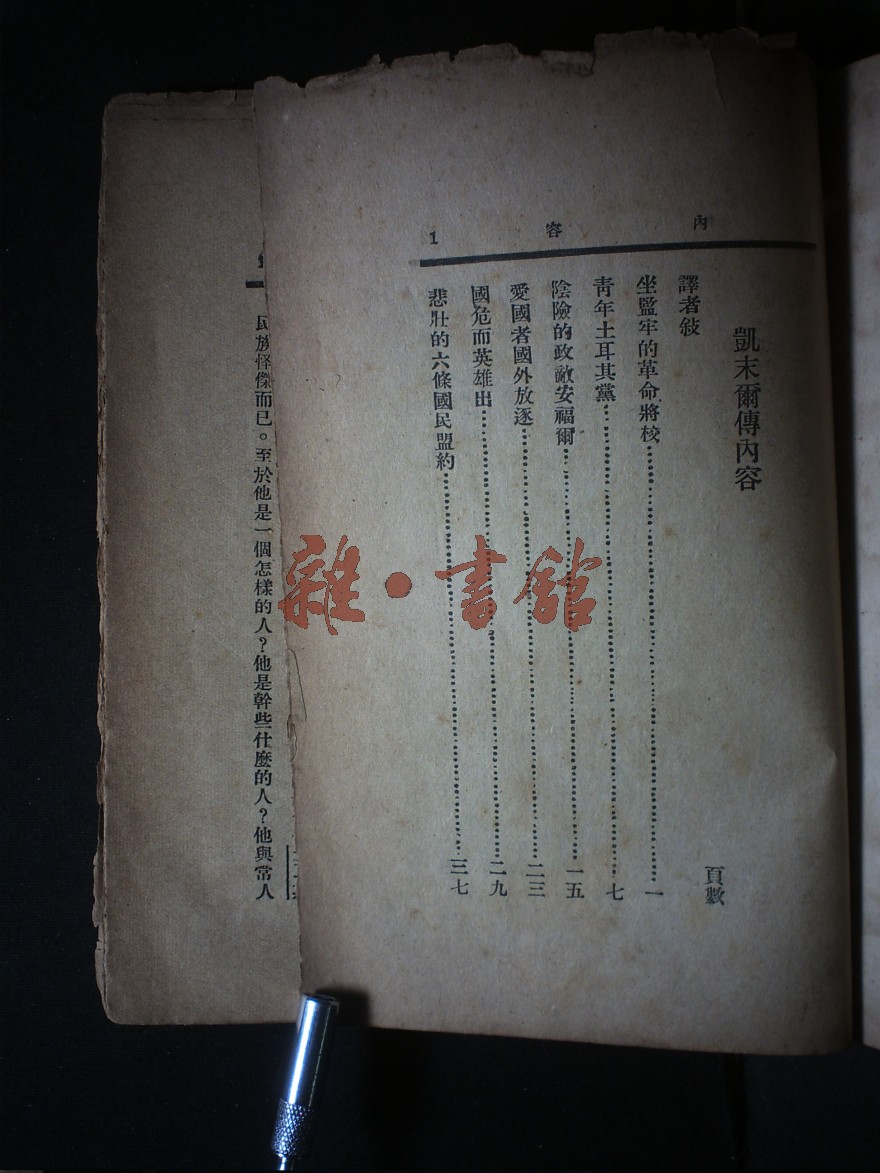 內容 1
凱末爾傳內容
頁數
譯者敍
坐監牢的革命將校……一
青年土耳其黨……七
陰險的政敵安福爾……一五
愛國者國外放逐……二三
國危而英雄出……二九
悲壯的六條國民盟約……三七
民族怪傑而已。至於他是一個怎樣的人?他是幹些什麼的人?他與常人
雜·書館